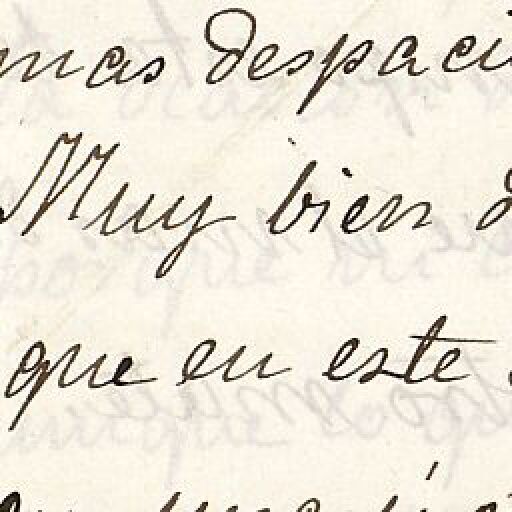 mas despaci
Muy bien
que en este